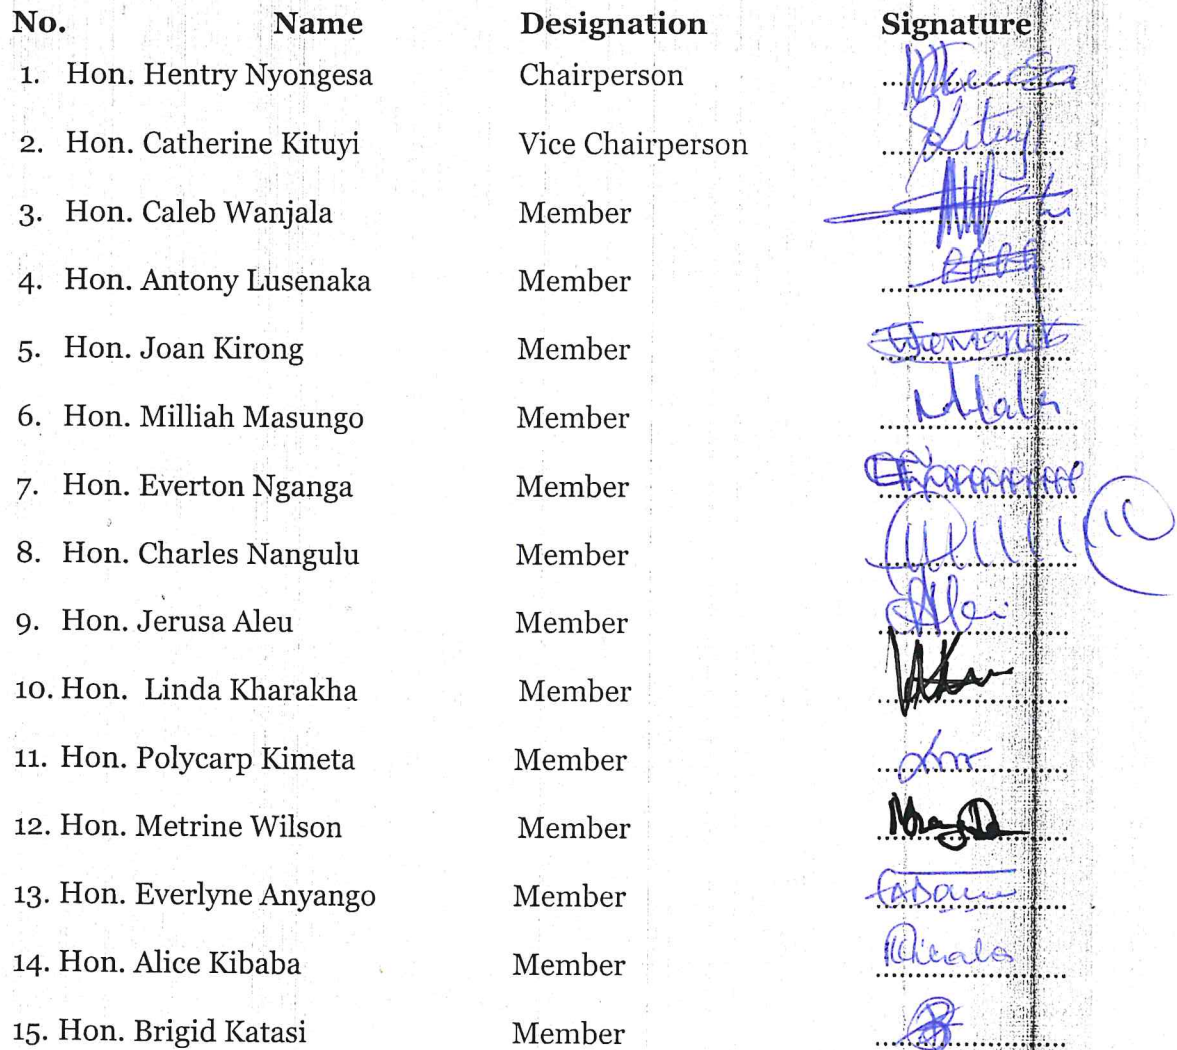 No. Name Designation Signature
1. Hon. Hentry Nyongesa Chairperson
2. Hon. Catherine Kituyi Vice Chairperson Kituyi
3. Hon. Caleb Wanjala Member
4. Hon. Antony Lusenaka Member
5. Hon. Joan Kirong Member
6. Hon. Milliah Masungo Member
7. Hon. Everton Nganga Member
8. Hon. Charles Nangulu Member
9. Hon. Jerusa Aleu Member
10. Hon. Linda Kharakha Member
11. Hon. Polycarp Kimeta Member
12. Hon. Metrine Wilson Member
13. Hon. Everlyne Anyango Member
14. Hon. Alice Kibaba Member
15. Hon. Brigid Katasi Member